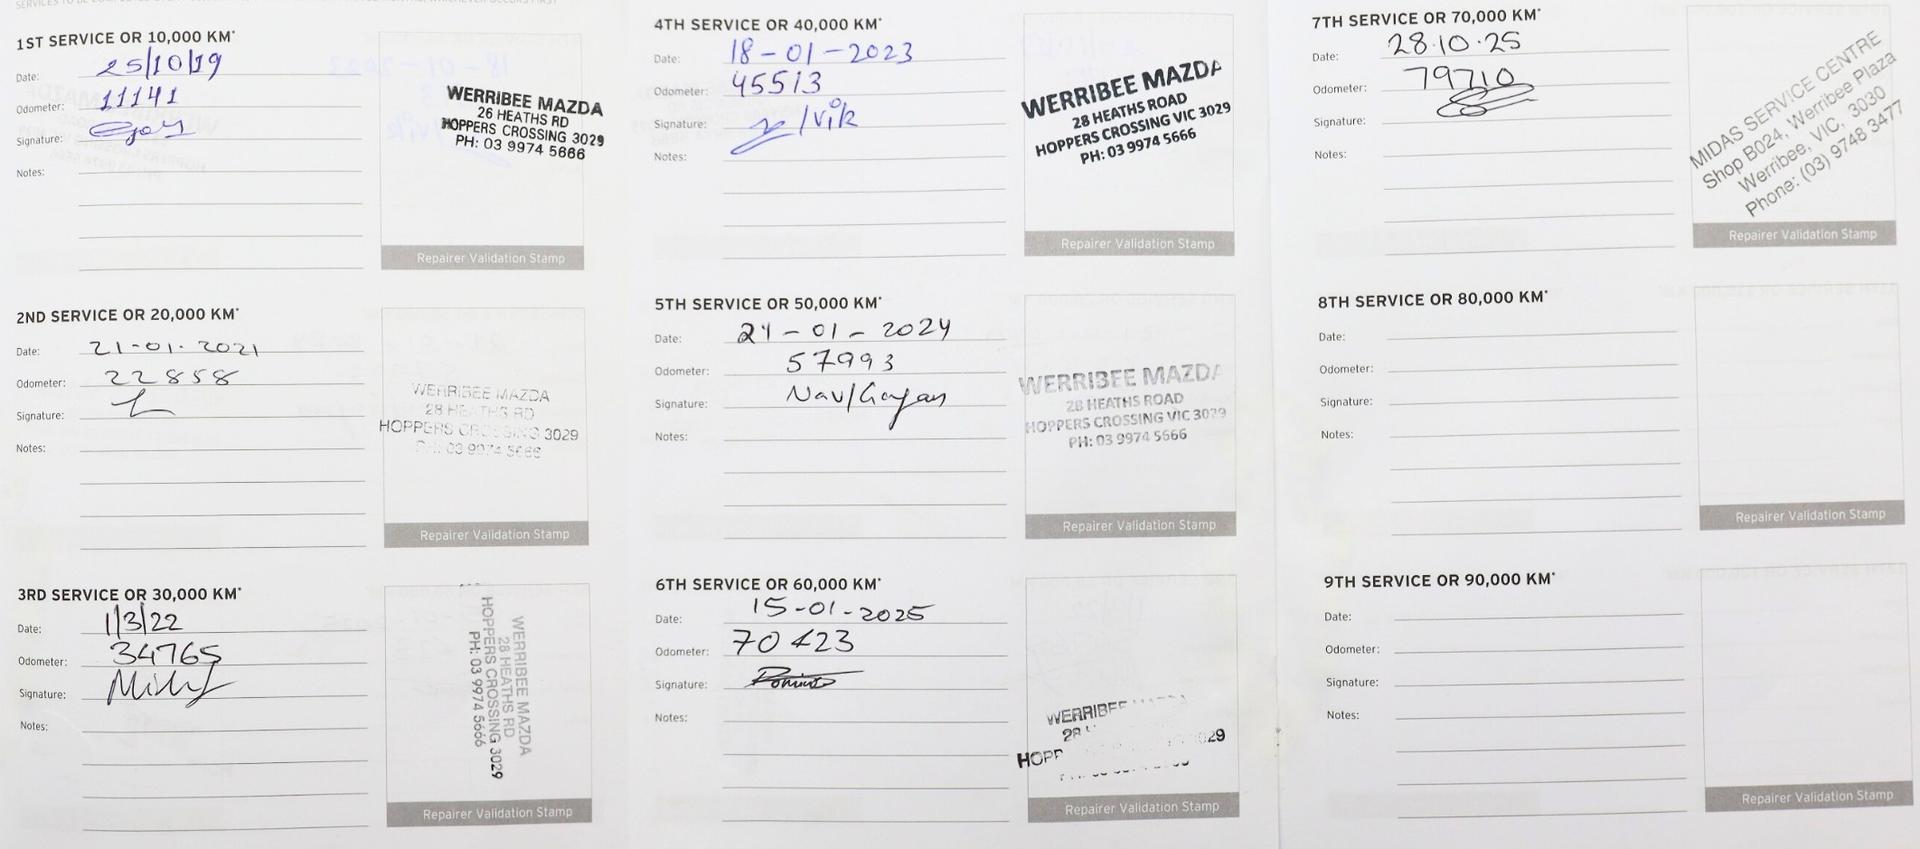 1ST SERVICE OR 10,000 KM*
Date: 25/10/19
Odometer: 11141
Signature:
Notes:
WERRIBEE MAZDA
26 HEATHS RD
HOPPERS CROSSING 3029
PH: 03 9974 5666
Repairer Validation Stamp
2ND SERVICE OR 20,000 KM*
Date: 21-01-2021
Odometer: 22858
Signature:
Notes:
WERRIBEE MAZDA
28 HEATHS RD
HOPPERS CROSSING 3029
PH: 03 9974 5666
Repairer Validation Stamp
3RD SERVICE OR 30,000 KM*
Date: 1/3/22
Odometer: 34765
Signature:
Notes:
WERRIBEE MAZDA
28 HEATHS RD
HOPPERS CROSSING 3029
PH: 03 9974 5666
Repairer Validation Stamp
4TH SERVICE OR 40,000 KM*
Date: 18-01-2023
Odometer: 45513
Signature: /Vik
Notes:
WERRIBEE MAZDA
28 HEATHS ROAD
HOPPERS CROSSING VIC 3029
PH: 03 9974 5666
Repairer Validation Stamp
5TH SERVICE OR 50,000 KM*
Date: 24-01-2024
Odometer: 57993
Signature: Nav/Gayan
Notes:
WERRIBEE MAZDA
28 HEATHS ROAD
HOPPERS CROSSING VIC 3029
PH: 03 9974 5666
Repairer Validation Stamp
6TH SERVICE OR 60,000 KM*
Date: 15-01-2025
Odometer: 70423
Signature:
Notes:
WERRIBEE
28
HOPP 3029
Repairer Validation Stamp
7TH SERVICE OR 70,000 KM*
Date: 28.10.25
Odometer: 79710
Signature:
Notes:
MIDAS SERVICE CENTRE
Shop B024, Werribee Plaza
Werribee, VIC, 3030
Phone: (03) 9748 3477
Repairer Validation Stamp
8TH SERVICE OR 80,000 KM*
Date:
Odometer:
Signature:
Notes:
Repairer Validation Stamp
9TH SERVICE OR 90,000 KM*
Date:
Odometer:
Signature:
Notes:
Repairer Validation Stamp